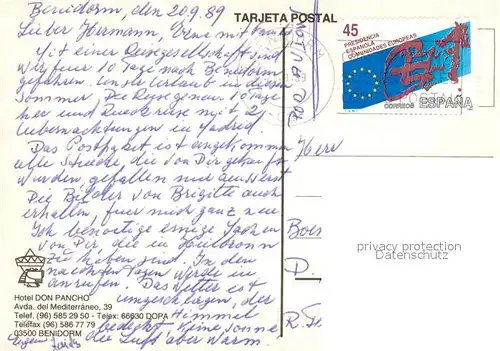 Benidorm, den 20.9.89
TARJETA POSTAL
Lieber Hermann, Irene mit Familie
Mit einer Reisegesellschaft sind
wir für 10 Tage nach Benidorm
gefahren. Unser Urlaub in diesem
Sommer. Die Reise genau. 10 Tage
hier und Rückreise mit 2
Übernachtungen in Madrid.
Das Postpaket ist angekommen
alle Stücke, die von Dir gekauft
wurden, gefallen mir am
Die Bilder von Brigitte auch
erhalten, für mich ganz neu
Ich benötige einige Sachen
von Dir, die in Heilbronn
zu haben sind. In den
nächsten Tagen werde ich
anrufen. Das Wetter ist
umgeschlagen, der
Himmel
bedeckt keine Sonne
die Luft aber warm.
POR AVION
Herr
D.
45
PRESIDENCIA
ESPAÑOLA
COMUNIDADES EUROPEAS
CORREOS ESPAÑA
privacy protection
Datenschutz
Hotel DON PANCHO
Avda. del Mediterráneo, 39
Telef. (96) 585 29 50 - Telex: 66630 DOPA
Telefax (96) 586 77 79
03500 BENIDORM